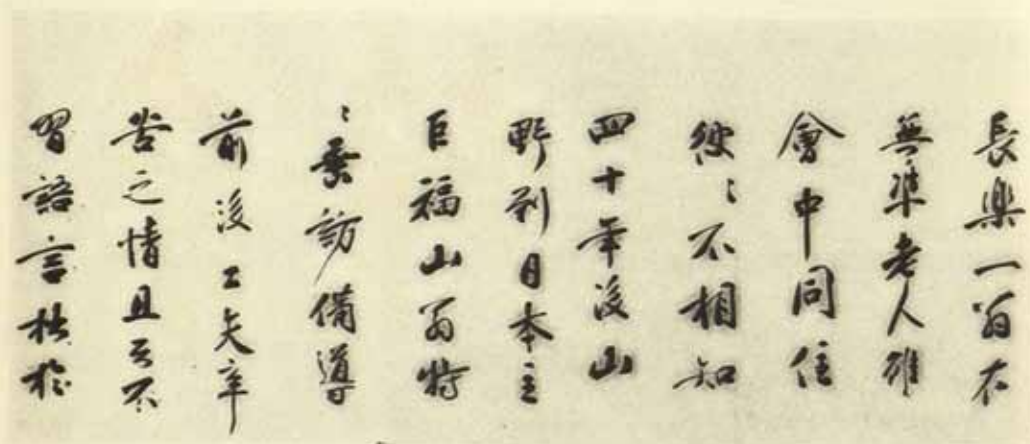 長樂一翁在
無準老人雖
會中同住
彼〻不相知
四十年後山
野到日本主
巨福山翁特
〻垂訪備導
前後工夫辛
苦之情且云不
習語言拙於